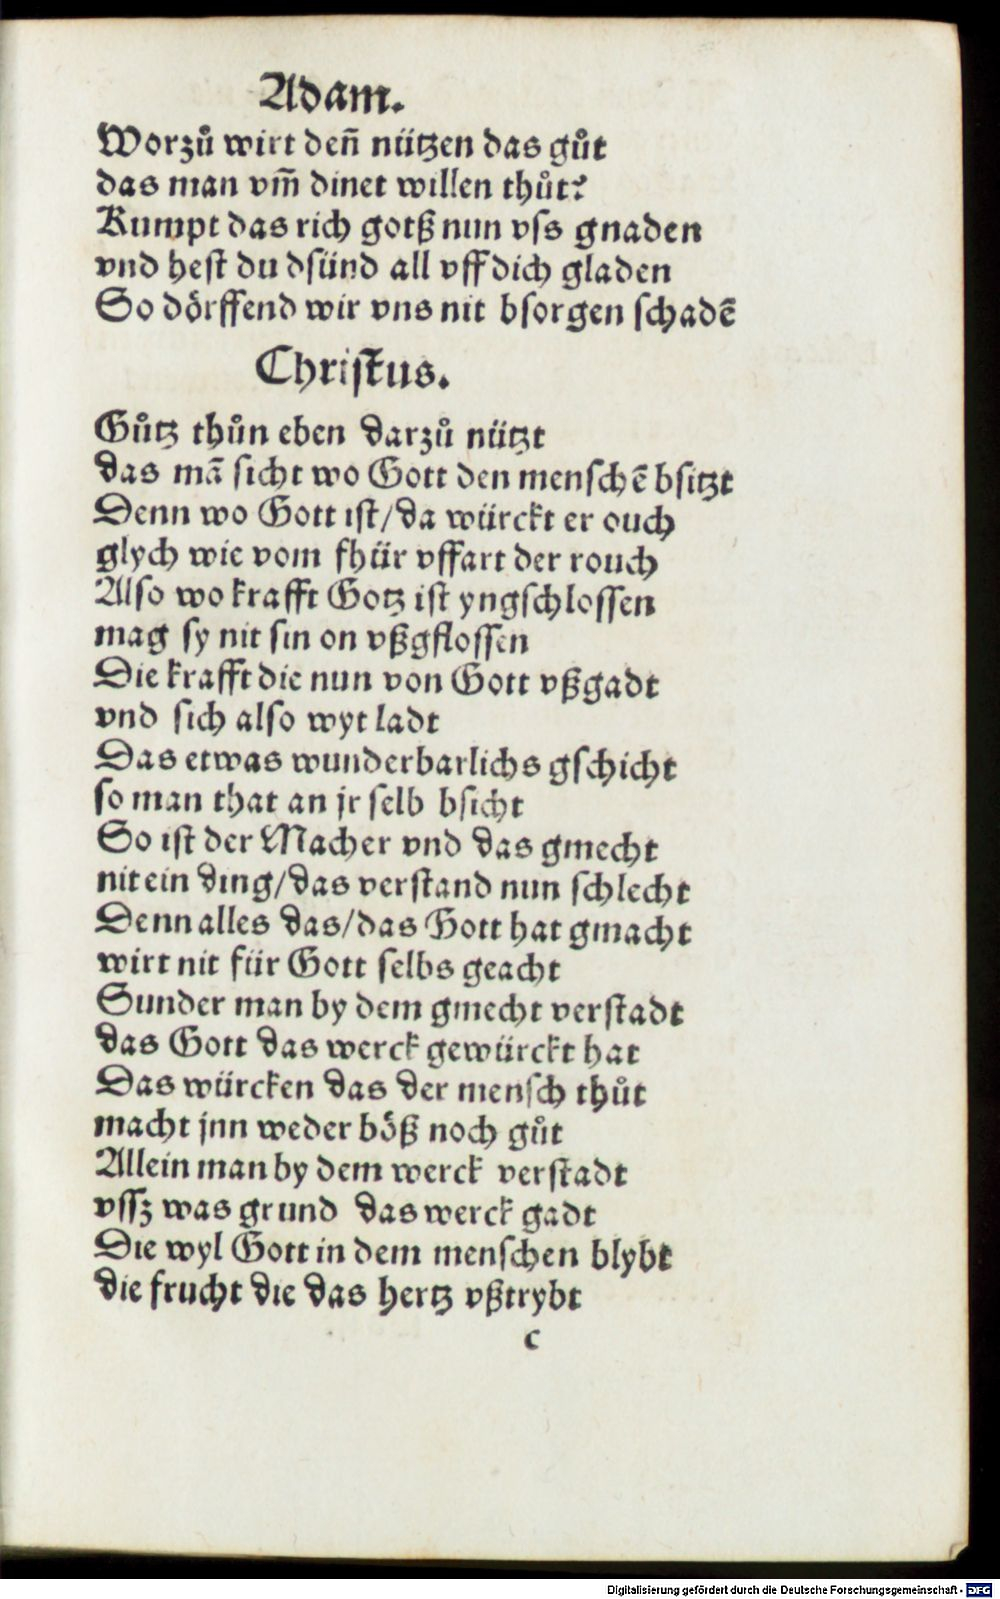 Adam.
Worzů wirt deñ nützen das gůt
das man vm̄ dinet willen thůt?
Kumpt das rich gotß nun vss gnaden
vnd hest du dsünd all vff dich gladen
So dörffend wir vns nit bsorgen schadē
Christus.
Gůtz thůn eben darzů nützt
das mā sicht wo Gott den menschē bsitzt
Denn wo Gott ist/da würckt er ouch
glych wie vom fhür vffart der rouch
Also wo krafft Gotz ist yngschlossen
mag sy nit sin on vßgflossen
Die krafft die nun von Gott vßgadt
vnd sich also wyt ladt
Das etwas wunderbarlichs gschicht
so man that an jr selb bsicht
So ist der Macher vnd das gmecht
nit ein ding/das verstand nun schlecht
Denn alles das/das Gott hat gmacht
wirt nit für Gott selbs geacht
Sunder man by dem gmecht verstadt
das Gott das werck gewürckt hat
Das würcken das der mensch thůt
macht jnn weder böß noch gůt
Allein man by dem werck verstadt
vssz was grund das werck gadt
Die wyl Gott in dem menschen blybt
die frucht die das hertz vßtrybt
c
Digitalisierung gefördert durch die Deutsche Forschungsgemeinschaft - DFG